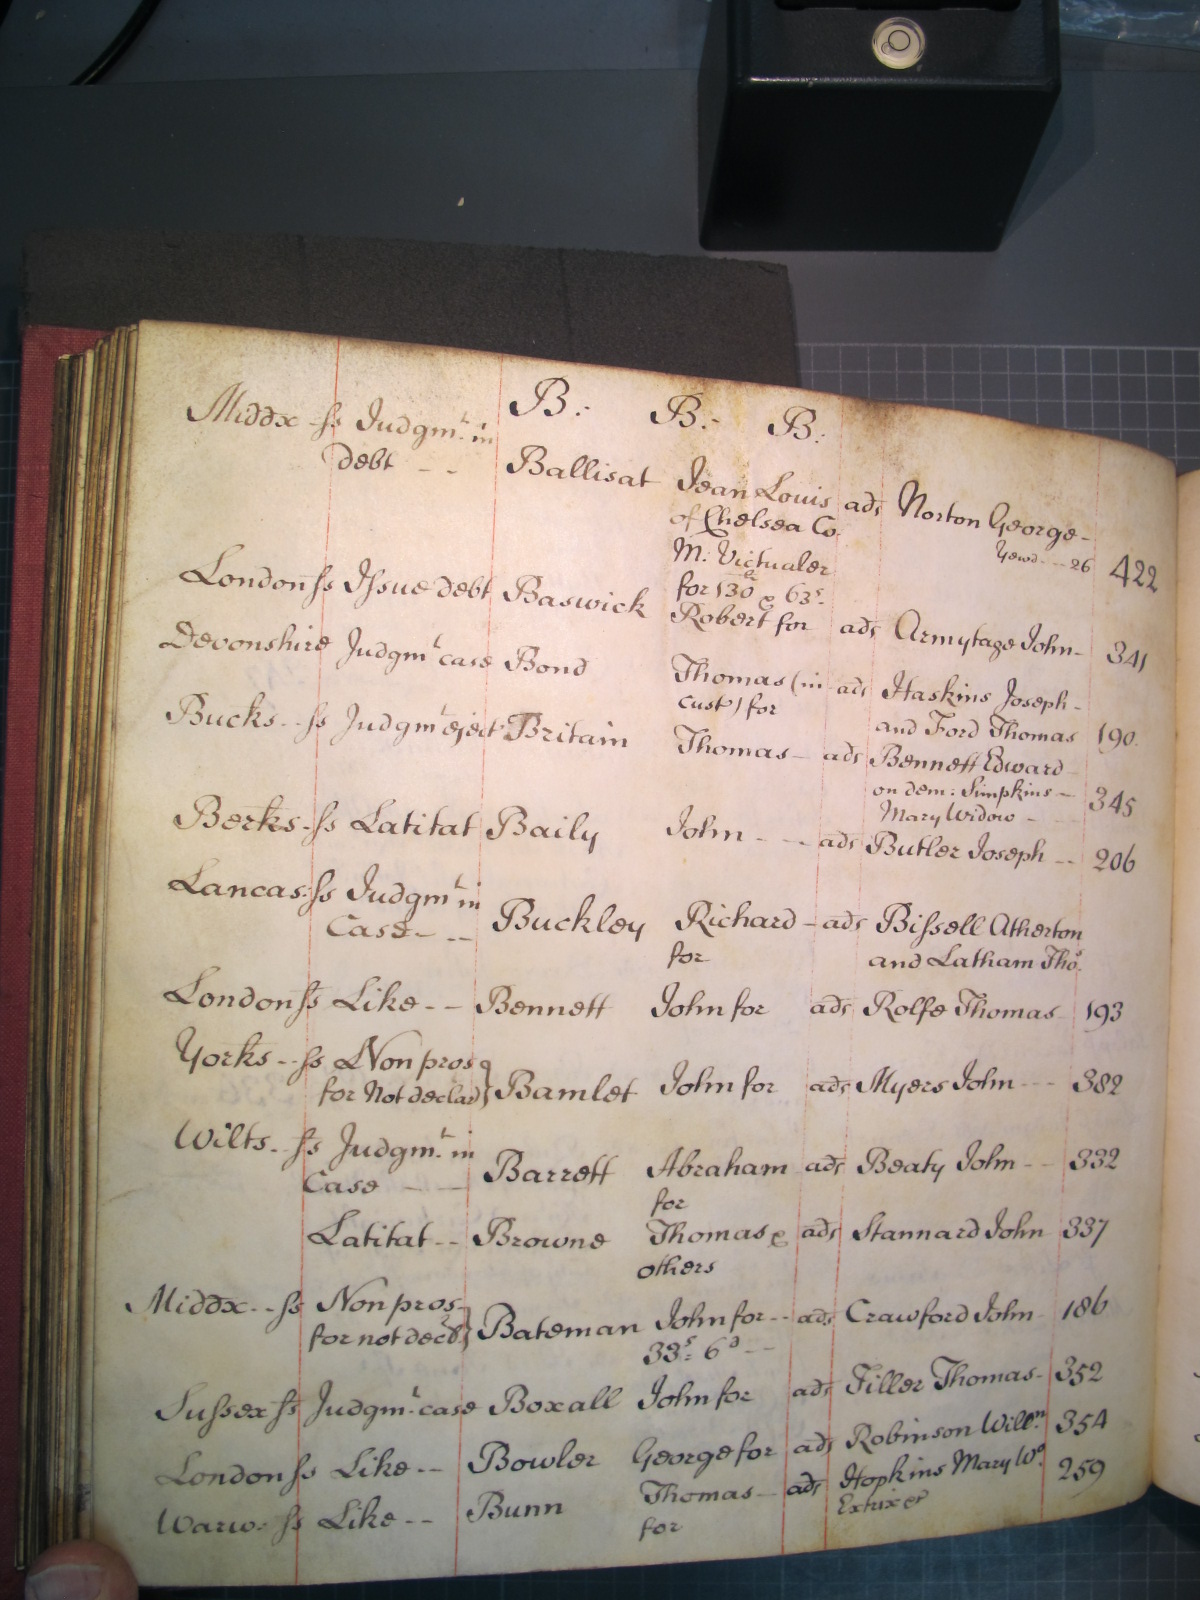 B:- B:- B:
Middx - ss Judgmt. in
debt - - Ballisat Jean Louis ads Norton George -
of Chelsea Co.
M: Victualer
for 130£ & 63s.
26 422
London ss Issue debt Baswick Robert for ads Armytage John - 341
Devonshire Judgmt case Bond Thomas (in ads Haskins Joseph -
cust) for and Ford Thomas 190
Bucks - - ss Judgmt eject Britain Thomas - ads Bennett Edward
on dem: Simpkins -
Mary Widow - 345
Berks - ss Latitat Baily John - - - ads Butler Joseph - - 206
Lancas: ss Judgmt in
Case - - - Buckley Richard - ads Bissell Atherton
for and Latham Thos.
London ss Like - - Bennett John for ads Rolfe Thomas 193
Yorks - - ss Non pros
for Not declar} Bamlet John for ads Myers John - - - 382
Wilts - ss Judgmt. in
Case - - Barrett Abraham ads Beaty John - - 332
for
Latitat - - Browne Thomas & ads Stannard John 337
others
Middx - - ss Non pros
for not decd} Bateman John for - - ads Crawford John 186
33s: 6d - -
Sussex ss Judgmt. case Boxall John for ads Tiller Thomas - 352
London ss Like - - Bowler George for ads Robinson Willm. 354
Warw: ss Like - - Bunn Thomas - ads Hopkins Mary Wo. 259
for Extrix et